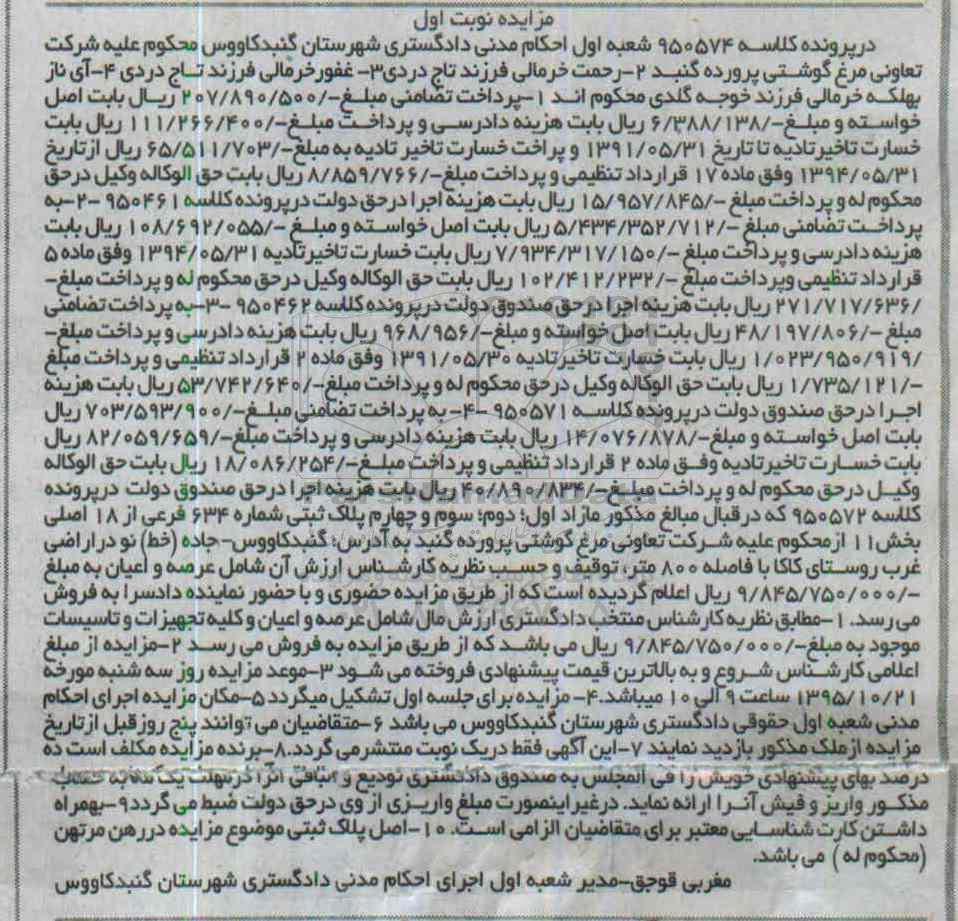 مزایده نوبت اول
درپرونده کلاسه ۹۵۰۵۷۴ شعبه اول احکام مدنی دادگستری شهرستان گنبدکاووس محکوم علیه شرکت
تعاونی مرغ گوشتی پرورده گنبد ۲-رحمت خرمالی فرزند تاج دردی۳- غفورخرمالی فرزند تاج دردی ۴-آی ناز
بهلکه خرمالی فرزند خوجه گلدی محکوم اند ۱-پرداخت تضامنی مبلغ-/۲۰۷/۸۹۰/۵۰۰ ریال بابت اصل
خواسته و مبلغ-/۶/۳۸۸/۱۳۸ ریال بابت هزینه دادرسی و پرداخت مبلغ-/۱۱۱/۲۶۶/۴۰۰ ریال بابت
خسارت تاخیرتادیه تا تاریخ ۱۳۹۱/۰۵/۳۱ و پراخت خسارت تاخیر تادیه به مبلغ-/۶۵/۵۱۱/۷۰۳ ریال ازتاریخ
۱۳۹۴/۰۵/۳۱ وفق ماده ۱۷ قرارداد تنظیمی و پرداخت مبلغ-/۸/۸۵۹/۷۶۶ ریال بابت حق الوکاله وکیل درحق
محکوم له و پرداخت مبلغ -/۱۵/۹۵۷/۸۴۵ ریال بابت هزینه اجرا درحق دولت درپرونده کلاسه ۹۵۰۴۶۱ -۲-به
پرداخت تضامنی مبلغ -/۵/۴۳۴/۳۵۲/۷۱۲ ریال بابت اصل خواسته و مبلغ -/۱۰۸/۶۹۲/۰۵۵ ریال بابت
هزینه دادرسی و پرداخت مبلغ -/۷/۹۳۴/۳۱۷/۱۵۰ ریال بابت خسارت تاخیرتادیه ۱۳۹۴/۰۵/۳۱ وفق ماده ۵
قرارداد تنظیمی وپرداخت مبلغ -/۱۰۲/۴۱۲/۲۳۲ ریال بابت حق الوکاله وکیل درحق محکوم له و پرداخت مبلغ-
/۲۷۱/۷۱۷/۶۳۶ ریال بابت هزینه اجرا درحق صندوق دولت درپرونده کلاسه ۹۵۰۴۶۲ -۳-به پرداخت تضامنی
مبلغ -/۴۸/۱۹۷/۸۰۶ ریال بابت اصل خواسته و مبلغ-/۹۶۸/۹۵۶ ریال بابت هزینه دادرسی و پرداخت مبلغ-
/۱/۰۲۳/۹۵۰/۹۱۹ ریال بابت خسارت تاخیرتادیه ۱۳۹۱/۰۵/۳۰ وفق ماده ۲ قرارداد تنظیمی و پرداخت مبلغ
-/۱/۷۳۵/۱۲۱ ریال بابت حق الوکاله وکیل درحق محکوم له و پرداخت مبلغ-/۵۳/۷۴۲/۶۴۰ ریال بابت هزینه
اجرا درحق صندوق دولت درپرونده کلاسه ۹۵۰۵۷۱ -۴- به پرداخت تضامنی مبلغ-/۷۰۳/۵۹۳/۹۰۰ ریال
بابت اصل خواسته و مبلغ-/۱۴/۰۷۶/۸۷۸ ریال بابت هزینه دادرسی و پرداخت مبلغ-/۸۲/۰۵۹/۶۵۹ ریال
بابت خسارت تاخیرتادیه وفق ماده ۲ قرارداد تنظیمی و پرداخت مبلغ-/۱۸/۰۸۶/۲۵۴ ریال بابت حق الوکاله
وکیل درحق محکوم له و پرداخت مبلغ-/۴۰/۸۹۰/۸۳۴ ریال بابت هزینه اجرا درحق صندوق دولت درپرونده
کلاسه ۹۵۰۵۷۲ که درقبال مبالغ مذکور مازاد اول؛ دوم؛ سوم و چهارم پلاک ثبتی شماره ۶۳۴ فرعی از ۱۸ اصلی
بخش۱۱ ازمحکوم علیه شرکت تعاونی مرغ گوشتی پرورده گنبد به آدرس؛ گنبدکاووس-جاده (خط) نو دراراضی
غرب روستای کاکا با فاصله ۸۰۰ متر، توقیف و حسب نظریه کارشناس ارزش آن شامل عرصه و اعیان به مبلغ
-/۹/۸۴۵/۷۵۰/۰۰۰ ریال اعلام گردیده است که از طریق مزایده حضوری و با حضور نماینده دادسرا به فروش
می رسد. ۱-مطابق نظریه کارشناس منتخب دادگستری ارزش مال شامل عرصه و اعیان و کلیه تجهیزات و تاسیسات
موجود به مبلغ-/۹/۸۴۵/۷۵۰/۰۰۰ ریال می باشد که از طریق مزایده به فروش می رسد ۲-مزایده از مبلغ
اعلامی کارشناس شروع و به بالاترین قیمت پیشنهادی فروخته می شود ۳-موعد مزایده روز سه شنبه مورخه
۱۳۹۵/۱۰/۲۱ ساعت ۹ الی ۱۰ میباشد.۴- مزایده برای جلسه اول تشکیل میگردد ۵-مکان مزایده اجرای احکام
مدنی شعبه اول حقوقی دادگستری شهرستان گنبدکاووس می باشد ۶-متقاضیان می توانند پنج روزقبل ازتاریخ
مزایده ازملک مذکور بازدید نمایند ۷-این آگهی فقط دریک نوبت منتشرمی گردد.۸-برنده مزایده مکلف است ده
درصد بهای پیشنهادی خویش را فی المجلس به صندوق دادگستری تودیع و مابقی آنرا درمهلت یک ماه به حساب
مذکور واریز و فیش آنرا ارائه نماید. درغیراینصورت مبلغ واریزی از وی درحق دولت ضبط می گردد۹-بهمراه
داشتن کارت شناسایی معتبر برای متقاضیان الزامی است. ۱۰-اصل پلاک ثبتی موضوع مزایده دررهن مرتهن
(محکوم له ) می باشد.
مغربی قوجق-مدیر شعبه اول اجرای احکام مدنی دادگستری شهرستان گنبدکاووس